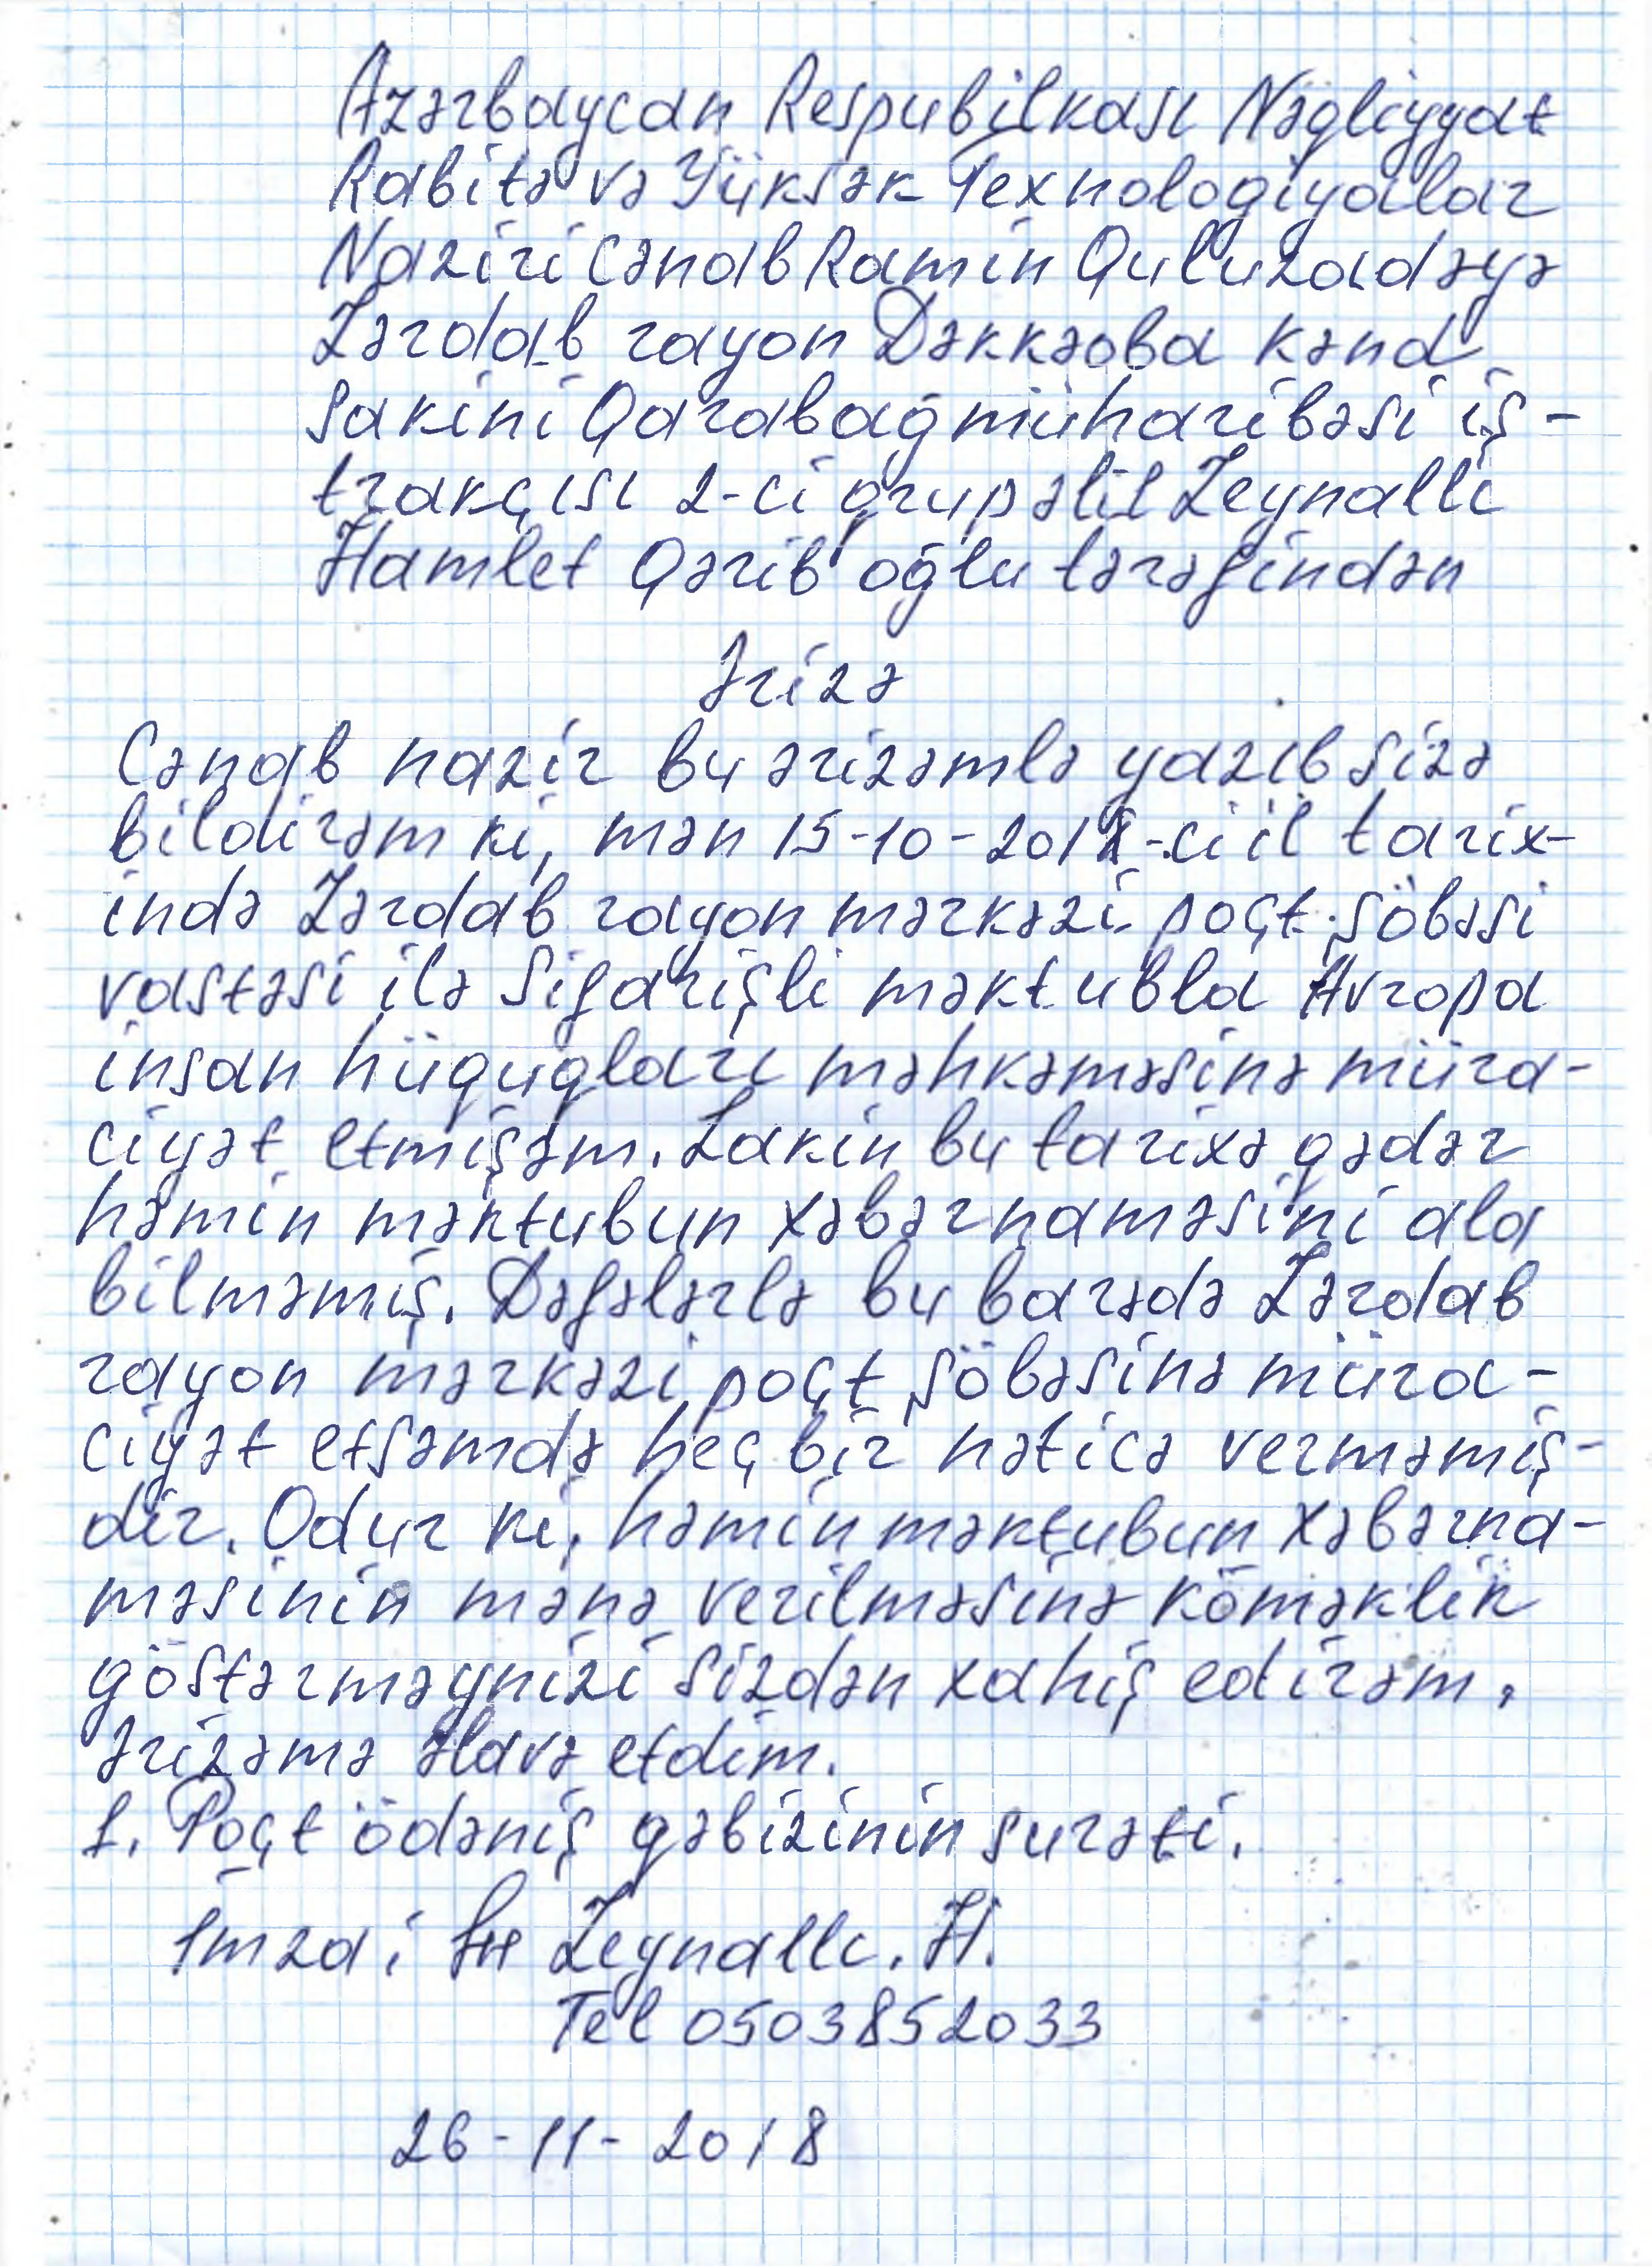 Azərbaycan Respubilkası Nəqliyyat
Rabitə və Yüksək Texnologiyalar
Naziri Cənab Ramin Quluzadəyə
Zərdab rayon Dəkkəoba kənd
sakini Qarabağ müharibəsi iş-
trakçısı 2-ci qrup əlil Zeynallı
Hamlet Qərib oğlu tərəfindən
Ərizə
Cənab nazir bu ərizəmlə yazıb sizə
bildirəm ki, mən 15-10-2018-ci il tarix-
ində Zərdab rayon mərkəzi poçt şöbəsi
vastəsi ilə Sifarişli məktubla Avropa
insan hüquqları məhkəməsinə müra-
ciyət etmişəm. Lakin bu tarixə qədər
həmin məktubun xəbərnaməsini ala
bilməmiş. Dəfələrlə bu barədə Zərdab
rayon mərkəzi poçt şöbəsinə müra-
ciyət etsəmdə heç bir nəticə verməmiş-
dir. Odur ki, həmin məktubun xəbərna-
məsinin mənə verilməsinə köməklik
göstərməynizi sizdən xahiş edirəm.
Ərizəmə əlavə etdim.
1. Poçt ödəniş qəbizinin surəti.
İmza: Zeynallı. H.
Tel 0503852033
26-11-2018